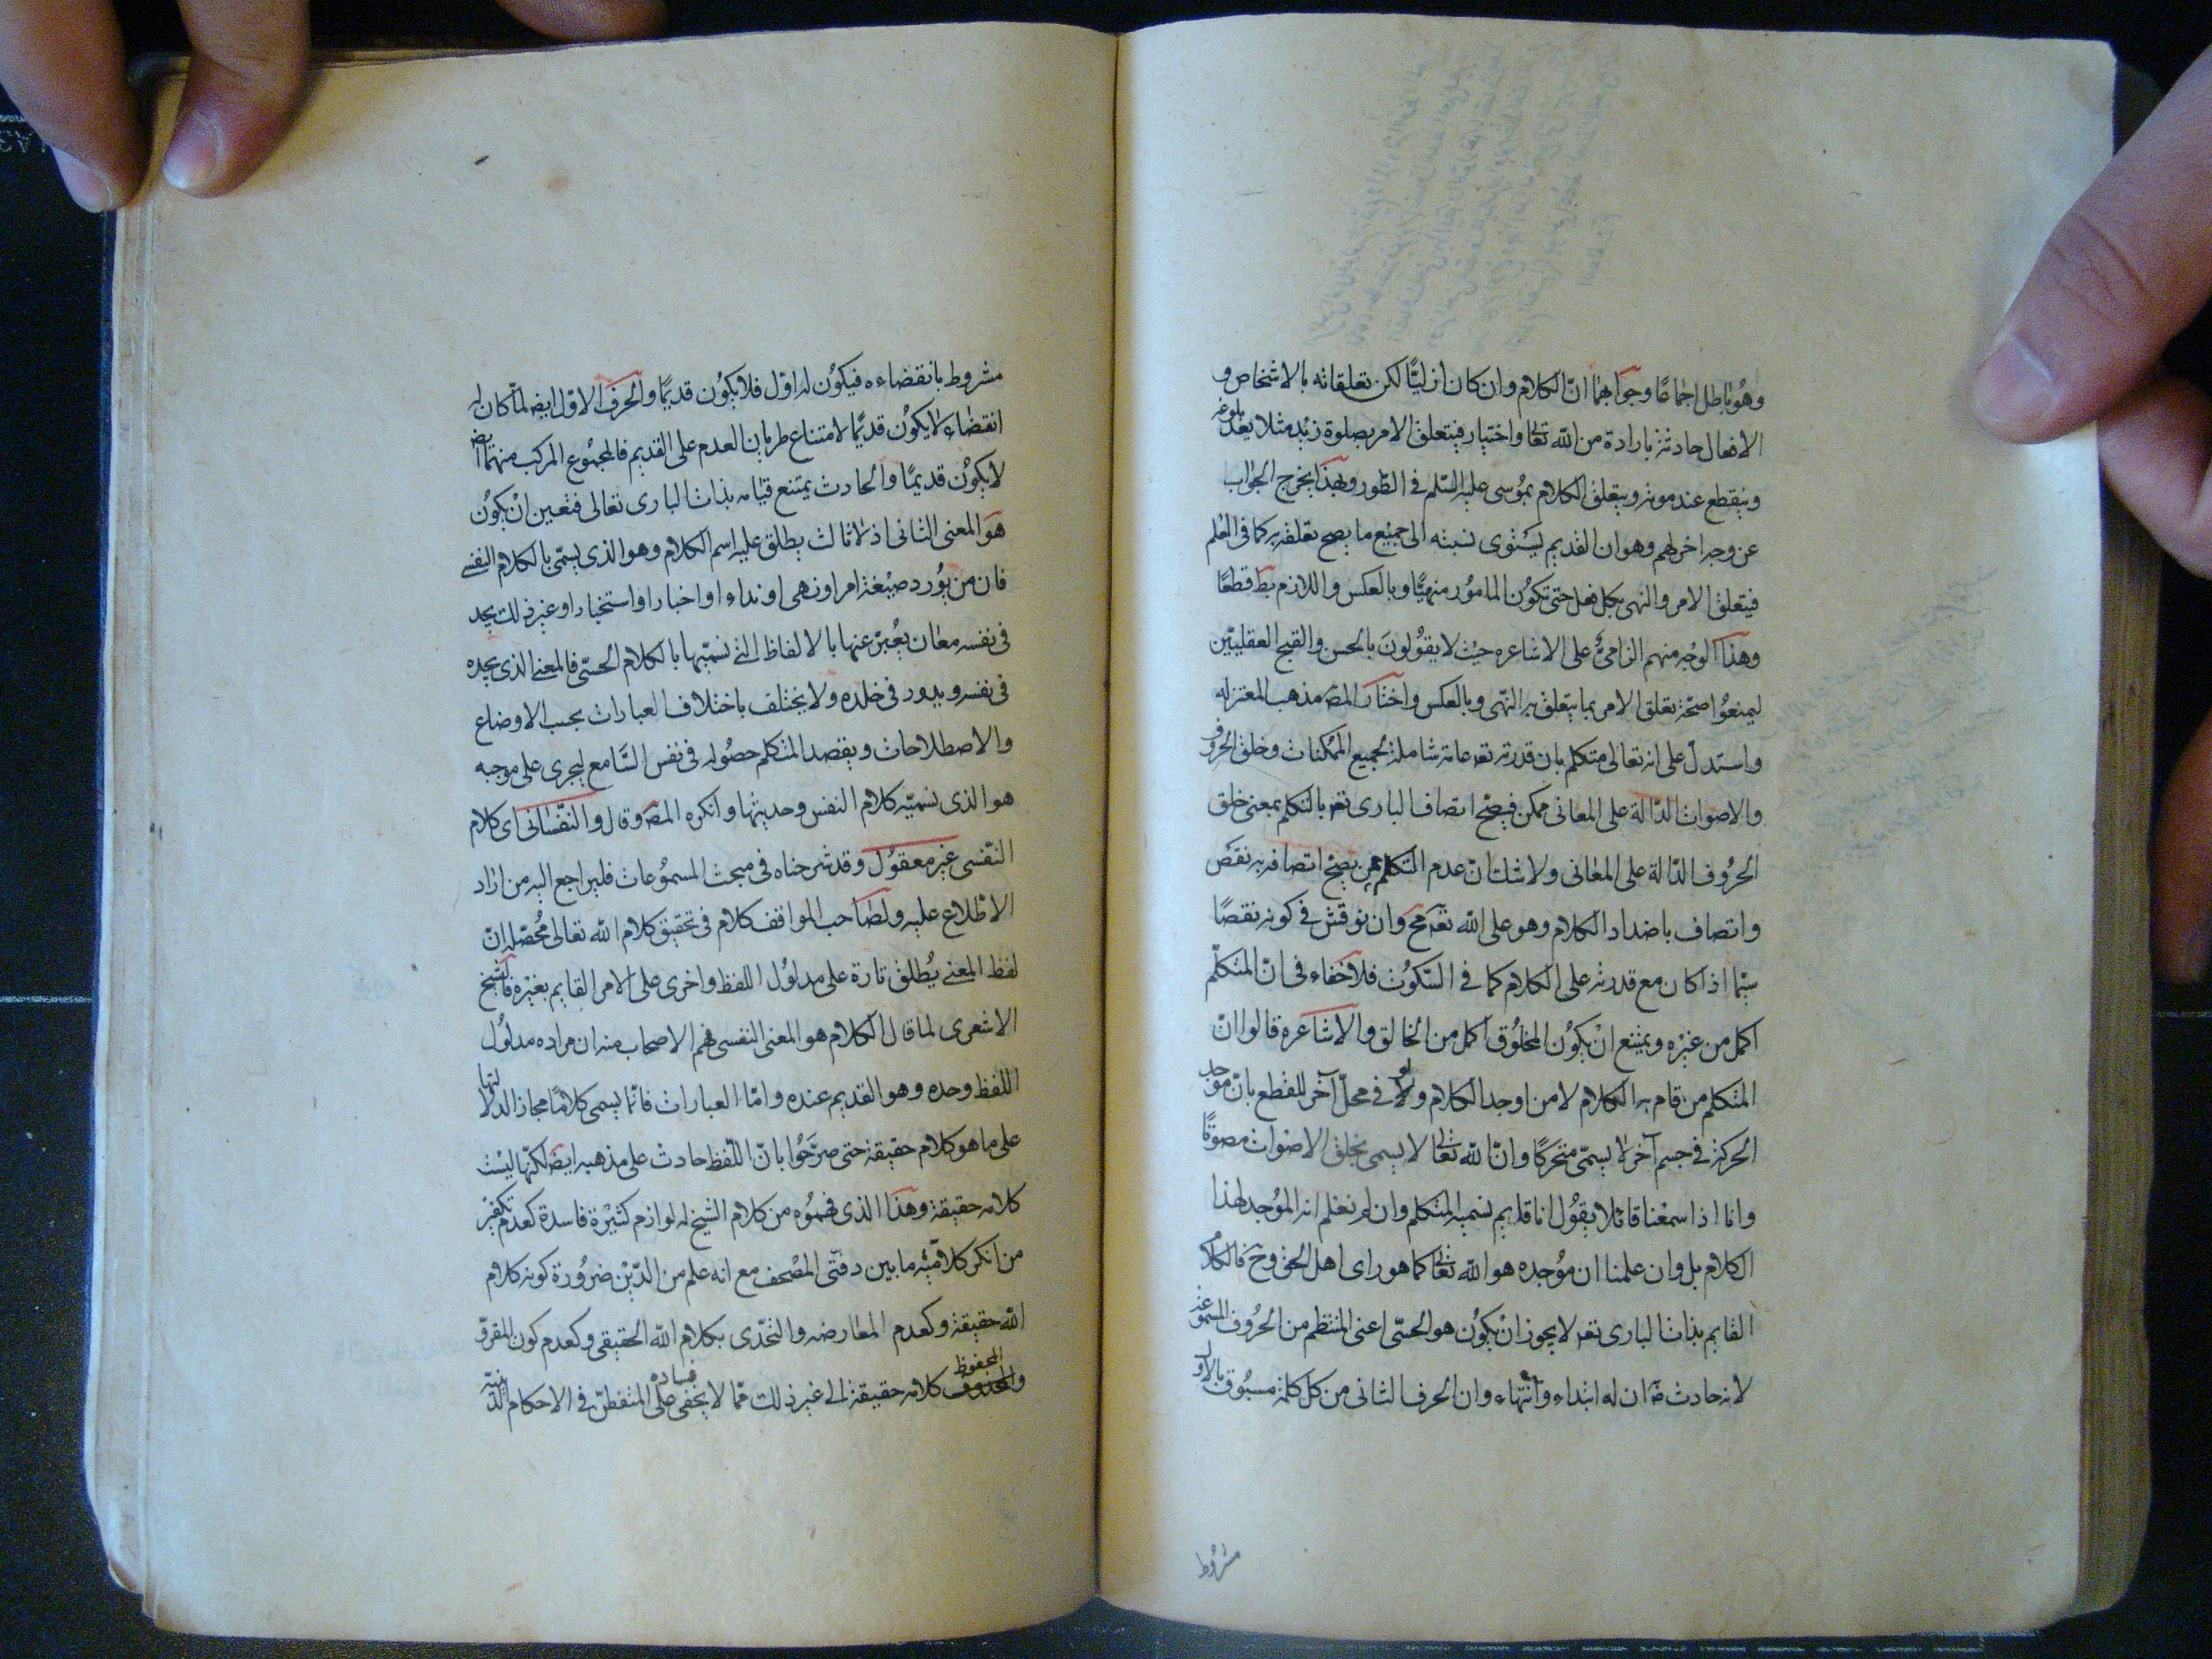 وهو باطل اجماعًا وجوابهما انّ الكلام وان كان ازليًّا لكن تعلقاته بالاشخاص و
الافعال حادثة بارادة من الله تعالى واختيار فيتعلق الامر بصلوة زيد مثلا بعد بلوغه
وينقطع عند موته ويتعلق الكلام بموسى عليه السّلم في الطّور وبهذا يخرج الجواب
عن وجه اخر لهم وهو ان القديم يستوى نسبته الى جميع ما يصح تعلقه به كما في العلم
فيتعلق الامر والنهى بكل فعل حتى تكون المامور منهيًّا وبالعكس واللازم بط قطعًا
وهذا الوجه منهم الزامىٌّ على الاشاعره حيث لا يقولون بالحسن والقبح العقليّين
ليمنعوا صحّة تعلق الامر بما يتعلق به النّهى وبالعكس واختار المصـ مذهب المعتزله
واستدلّ على انه تعالى متكلم بان قدرته تعـ عامة شاملة لجميع الممكنات وخلق الحروف
والاصوات الدّالة على المعانى ممكن فيصح اتصاف البارى تعـ بالتكلم بمعنى خلق
الحروف الدّالة على المعانى ولا شك انّ عدم التكلم ممن يصح اتصافه به نقص
واتصاف باضداد الكلام وهو على الله تعـ مح وان نوقش في كونه نقصًا
سيّما اذا كان مع قدرته على الكلام كما في السّكوت فلا خفاء فى انّ المتكلّم
اكمل من غيره ويمتنع ان يكون المخلوق اكمل من الخالق والاشاعرة قالوا انّ
المتكلم من قام به الكلام لا من اوجد الكلام ولو فى محلّ آخر للقطع بانّ موجد
الحركة في جسم آخر لا يسمّى متحركًا وانّ الله تعالى لا يسمى بخلق الاصوات مصوتًا
وانا اذا سمعنا قائلا يقول انا قايم نسميه المتكلم وان لم نعلم انه الموجد لهذا
الكلام بل وان علمنا ان موجده هو الله تعالى كما هو راى اهل الحق وح فالكلام
القايم بذات البارى تعـ لا يجوز ان يكون هو الحسّى اعنى المنتظم من الحروف المسموعة
لانه حادث ضـ ان له ابتداء وانتهاء وان الحرف الثانى من كل كلمة مسبوق بالاول
مشروط
مشروط بانقضاءه فيكون له اوّل فلا يكون قديمًا والحرف الاوّل ايضـ لمّا كان له
انقضاء لا يكون قديمًا لامتناع طريان العدم على القديم فالمجموع المركب منهما ايضـ
لا يكون قديمًا والحادث يمتنع قيامه بذات البارى تعالى فتعين ان يكون
هو المعنى الثانى اذ لا ثالث يطلق عليه اسم الكلام وهو الذى يسمّى بالكلام النفسى
فان من يورد صيغة امر او نهى او نداء او اخبار او استخبار او غير ذلك يجد
فى نفسه معان يعبّر عنها بالالفاظ التى نسمّيها بالكلام الحسّى فالمعنى الذى يجده
فى نفسه ويدور فى خلده ولا يختلف باختلاف العبارات بحسب الاوضاع
والاصطلاحات ويقصد المتكلم حصوله فى نفس السّامع ليجرى على موجبه
هو الذى نسميّه كلام النفس وحديثها وانكره المصـ وقال والنّفسانى اى كلام
النّفسى غير معقول وقد شرحناه فى مبحث المسموعات فليراجع اليه من اراد
الاطّلاع عليه ولصاحب المواقف كلام فى تحقيق كلام الله تعالى محصّله انّ
لفظ المعنى يُطلق تارة على مدلول اللفظ واخرى على الامر القايم بغيره فالشيخ
الاشعرى لما قال الكلام هو المعنى النفسى فهم الاصحاب منه ان مراده مدلول
اللفظ وحده وهو القديم عنده وامّا العبارات فانّما يسمى كلامًا مجازا لدلالتها
على ما هو كلام حقيقة حتى صرّحوا بانّ اللّفظ حادث على مذهبه ايضـ لكنّها ليست
كلامه حقيقة وهذا الذى فهموه من كلام الشيخ له لوازم كثيرة فاسدة كعدم تكفير
من انكر كلاميّة ما بين دفّتى المصحف مع انه علم من الدّين ضرورة كونه كلام
الله حقيقة وكعدم المعارضه والتحدّى بكلام الله الحقيقى وكعدم كون المقروّ
والمحفوظ كلامه حقيقة الى غير ذلك ممّا لا يخفى فساده على المتفطّن فى الاحكام الدّينيّة